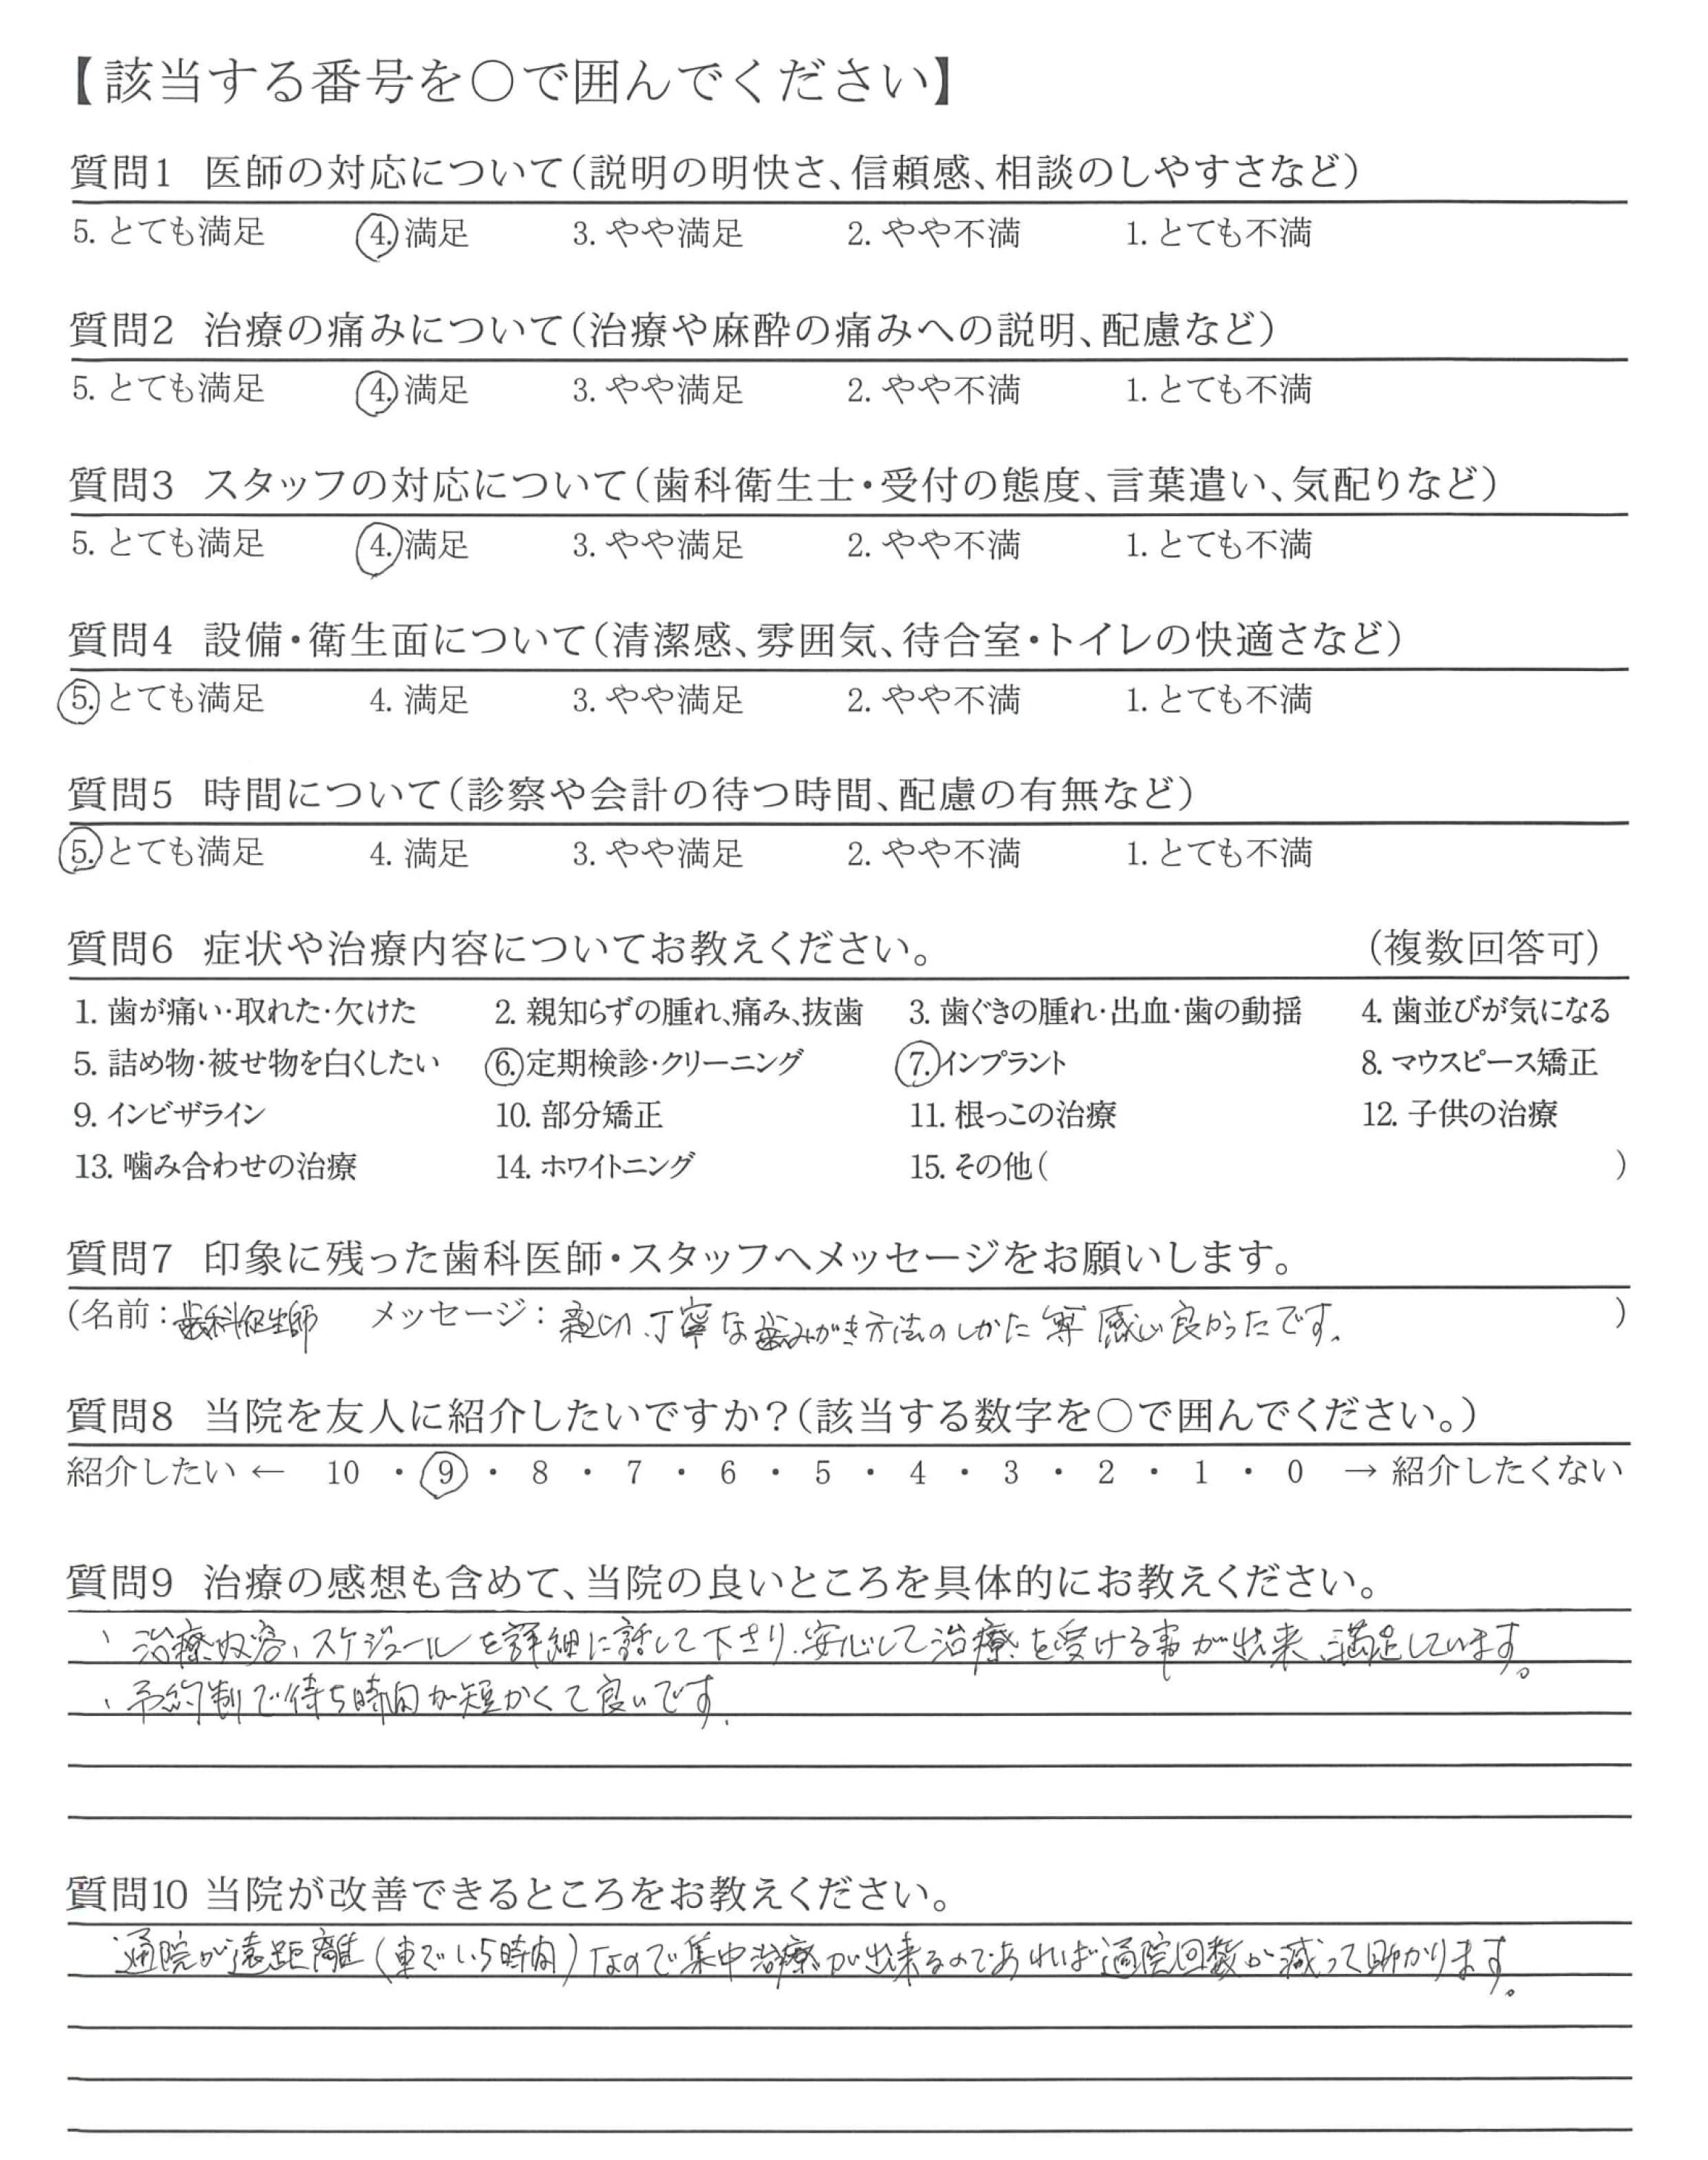 【該当する番号を○で囲んでください】
質問1 医師の対応について(説明の明快さ、信頼感、相談のしやすさなど)
5. とても満足 4. 満足 3. やや満足 2. やや不満 1. とても不満
質問2 治療の痛みについて(治療や麻酔の痛みへの説明、配慮など)
5. とても満足 4. 満足 3. やや満足 2. やや不満 1. とても不満
質問3 スタッフの対応について(歯科衛生士・受付の態度、言葉遣い、気配りなど)
5. とても満足 4. 満足 3. やや満足 2. やや不満 1. とても不満
質問4 設備・衛生面について(清潔感、雰囲気、待合室・トイレの快適さなど)
5. とても満足 4. 満足 3. やや満足 2. やや不満 1. とても不満
質問5 時間について(診察や会計の待つ時間、配慮の有無など)
5. とても満足 4. 満足 3. やや満足 2. やや不満 1. とても不満
質問6 症状や治療内容についてお教えください。 (複数回答可)
1. 歯が痛い・取れた・欠けた 2. 親知らずの腫れ、痛み、抜歯 3. 歯ぐきの腫れ・出血・歯の動揺 4. 歯並びが気になる
5. 詰め物・被せ物を白くしたい 6. 定期検診・クリーニング 7. インプラント 8. マウスピース矯正
9. インビザライン 10. 部分矯正 11. 根っこの治療 12. 子供の治療
13. 噛み合わせの治療 14. ホワイトニング 15. その他( )
質問7 印象に残った歯科医師・スタッフへメッセージをお願いします。
(名前:歯科衛生師 メッセージ:親切、丁寧な歯みがき方法のしかた等 感じ良かったです。)
質問8 当院を友人に紹介したいですか?(該当する数字を○で囲んでください。)
紹介したい ← 10 ・ 9 ・ 8 ・ 7 ・ 6 ・ 5 ・ 4 ・ 3 ・ 2 ・ 1 ・ 0 → 紹介したくない
質問9 治療の感想も含めて、当院の良いところを具体的にお教えください。
、治療内容、スケジュールを詳細に話して下さり、安心して治療を受ける事が出来、満足しています。
、予約制で待ち時間が短かくて良いです。
質問10 当院が改善できるところをお教えください。
通院が遠距離(車で1,5時間)なので集中治療が出来るのであれば通院回数が減って助かります。